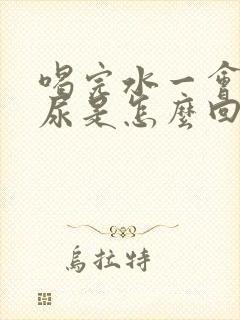 喝完水一會
尿是怎麼回
烏拉特